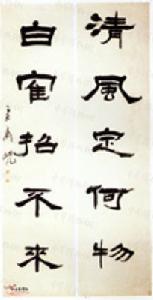 清風定何物
白寉招不來